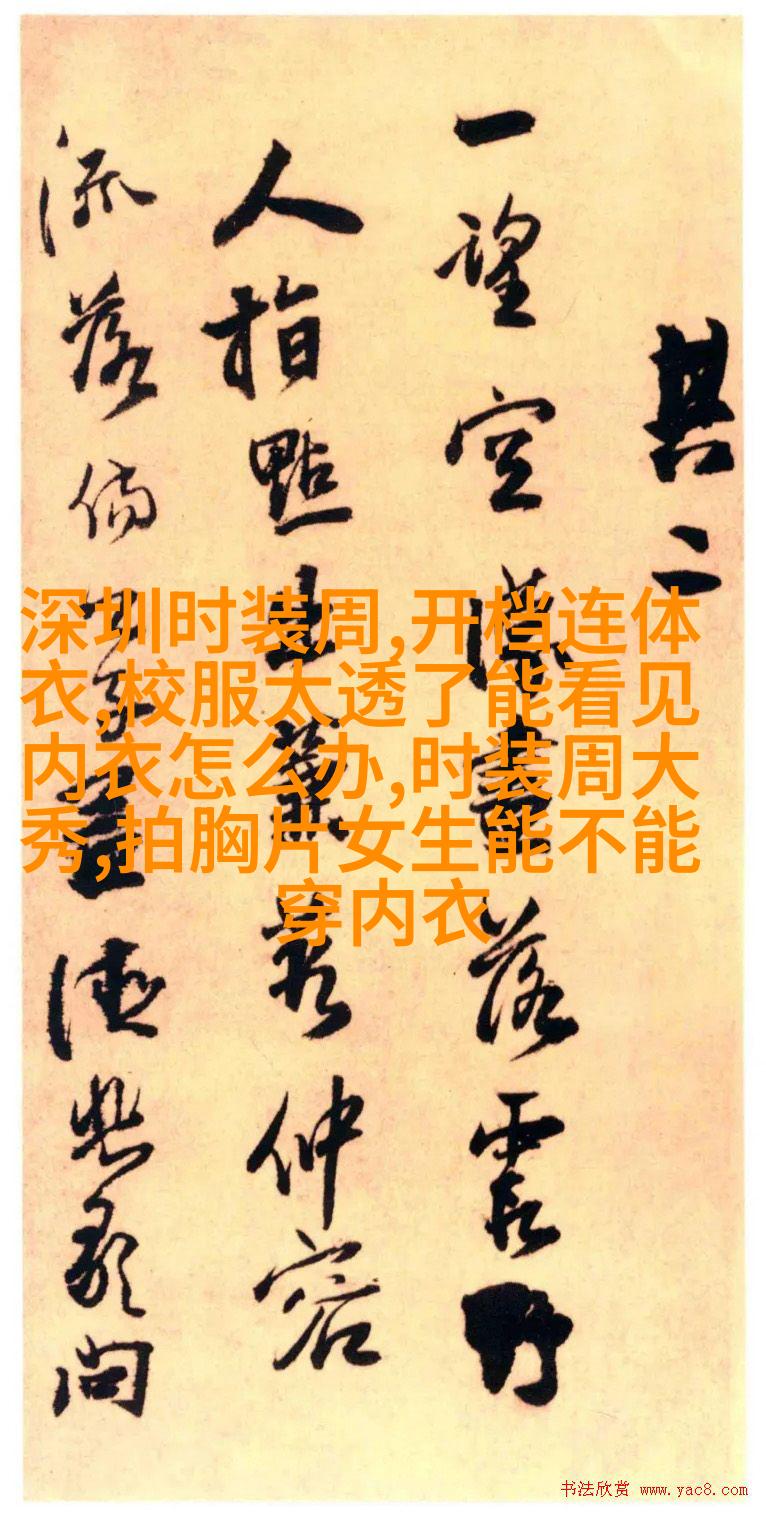 其二
一望空濛書落霞野
人指點仲容
流落問
深圳时装周,开档连体
衣,校服太透了能看见
内衣怎么办,时装周大
秀,拍胸片女生能不能
穿内衣
书法欣赏 www.yac8.com